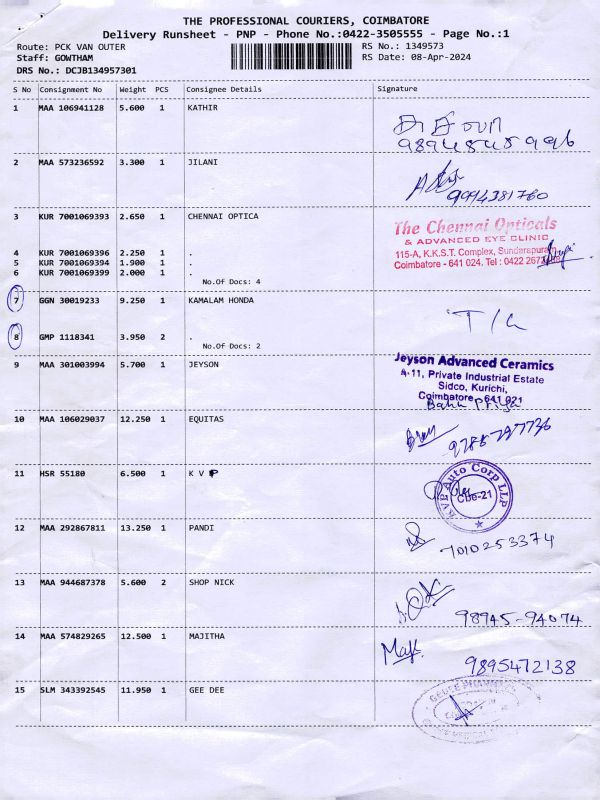 THE PROFESSIONAL COURIERS, COIMBATORE
Delivery Runsheet - PNP - Phone No.:0422-3505555 - Page No.:1
Route: PCK VAN OUTER RS No.: 1349573
Staff: GOWTHAM RS Date: 08-Apr-2024
DRS No.: DCJB134957301
S No Consignment No Weight PCS Consignee Details Signature
1 MAA 106941128 5.600 1 KATHIR
9894545996
2 MAA 573236592 3.300 1 JILANI
9994381760
3 KUR 7001069393 2.650 1 CHENNAI OPTICA
The Chennai Opticals
& ADVANCED EYE CLINIC
4 KUR 7001069396 2.250 1 . 115-A, K.K.S.T. Complex, Sundarapuram
5 KUR 7001069394 1.900 1 . Coimbatore - 641 024. Tel : 0422
6 KUR 7001069399 2.000 1 .
No.Of Docs: 4
7 GGN 30019233 9.250 1 KAMALAM HONDA
8 GMP 1118341 3.950 2 .
No.Of Docs: 2
9 MAA 301003994 5.700 1 JEYSON
Jeyson Advanced Ceramics
A-11, Private Industrial Estate
Sidco, Kurichi,
Coimbatore - 641 021
10 MAA 106029037 12.250 1 EQUITAS
9788797736
11 HSR 55180 6.500 1 K V P
KVP Auto Corp LLP
Cbe-21
12 MAA 292867811 13.250 1 PANDI
7010253374
13 MAA 944687378 5.600 2 SHOP NICK
98945-94074
14 MAA 574829265 12.500 1 MAJITHA
9895472138
15 SLM 343392545 11.950 1 GEE DEE